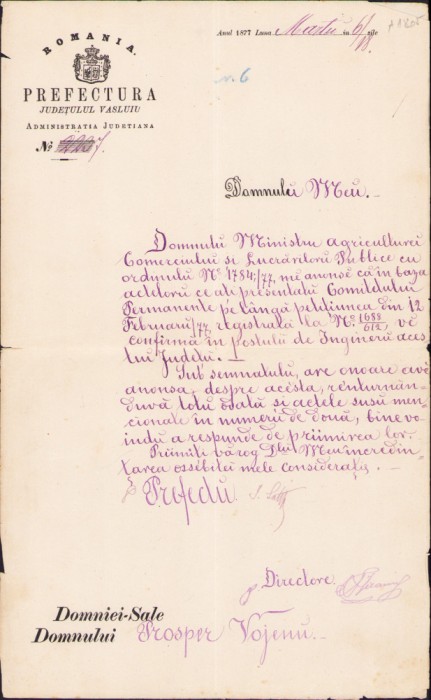 ROMANIA.
PREFECTURA
JUDEȚULUI VASLUIU
ADMINISTRATIA JUDETIANA
No 2237
Anul 1877 Luna Martiu in 6/18 zile
n. 6
Domnulŭ Meu.—
Domnulŭ Ministru agriculturei
Comerciului si Lucrărilorŭ Publice cu
ordinulŭ No 1784/77, me anonsĕ că in baza
actelorŭ ce ati presentatŭ Comitetului
Permanente pe lângă petitiunea din 12
Februariŭ /77, registrată la No 1688/612, vĕ
confirmă in postulŭ de Ingineru aces
tui Judetŭ.—
Sub semnatulŭ, are onoare avĕ
anonsa, despre acesta, reînturnân
duvĕ totŭ odată si actele susŭ men
cionate in numeru de două, binevo
indu a respunde de priimirea lor.—
Priimiti vĕ rog Dlŭ Meu incredin
țarea osebitei mele consideratii.—
p Prefectŭ
p Directore
Domniei-Sale
Domnului Prosper Vojenu.—